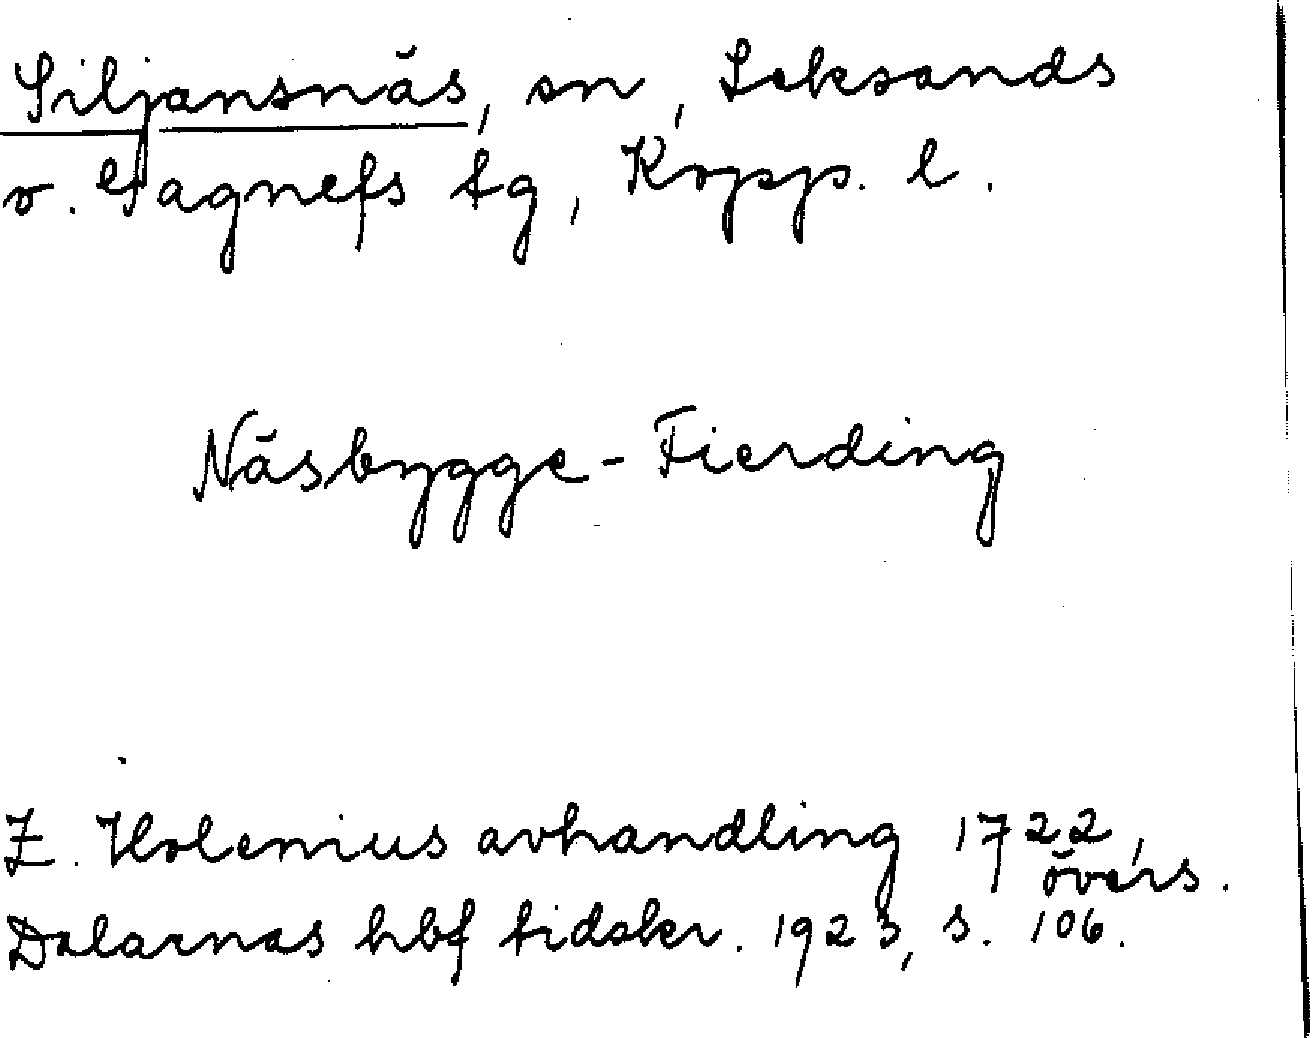 Siljansnäs, sn, Leksands
o. Gagnefs tg, Kopp. l.
Näsbygge-Fierding
Z. Holenius avhandling 1722,
övers.
Dalarnas hbf tidskr. 1923, s. 106.